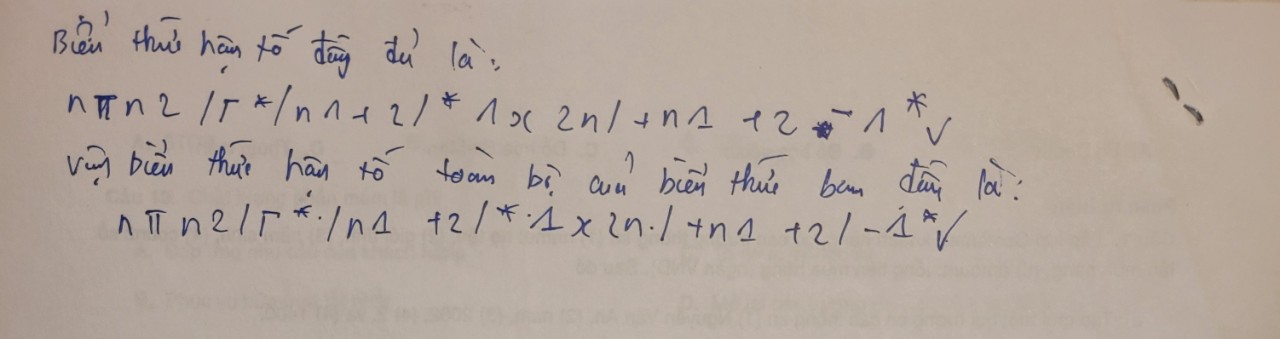 Biểu thức hậu tố đầy đủ là:
n π n 2 / Γ * / n 1 + 2 / * 1 x 2 n / + n 1 + 2 - 1 * √
Vậy biểu thức hậu tố toàn bộ của biểu thức ban đầu là:
n π n 2 / Γ * . / n 1 + 2 / * . 1 x 2 n . / + n 1 + 2 / - 1 * √